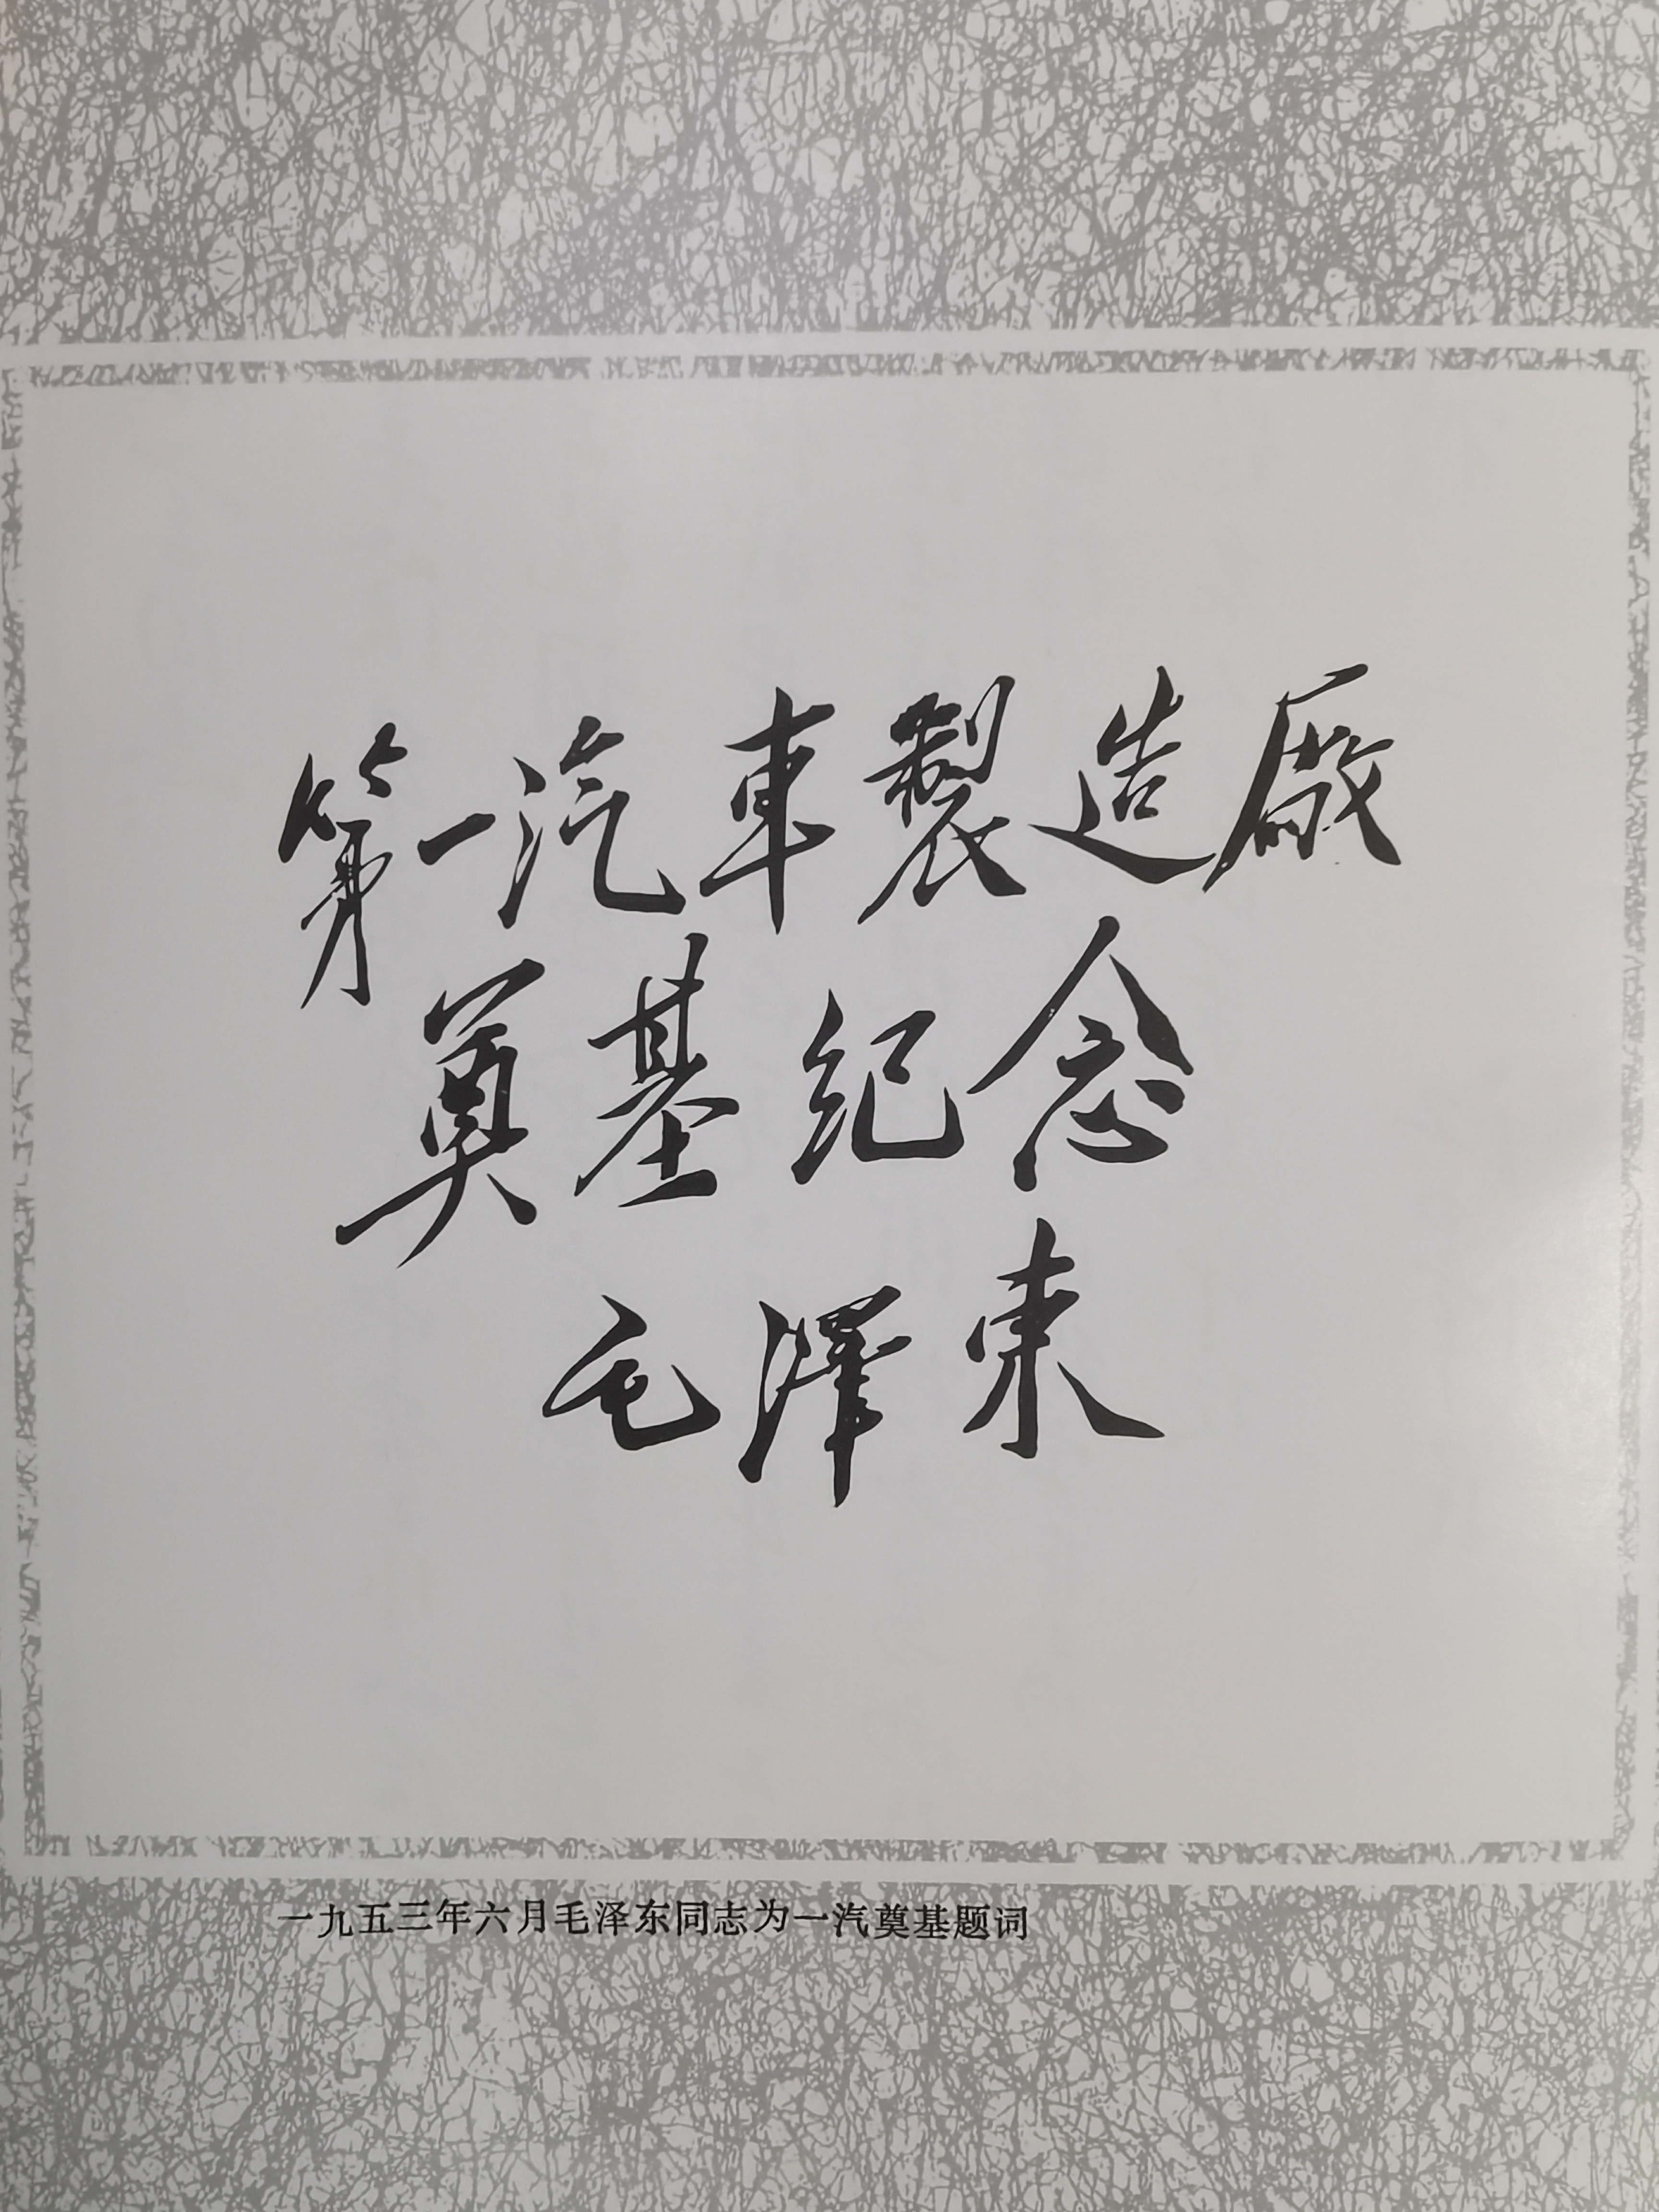 第一汽車製造廠
奠基纪念
毛澤東
一九五三年六月毛泽东同志为一汽奠基题词